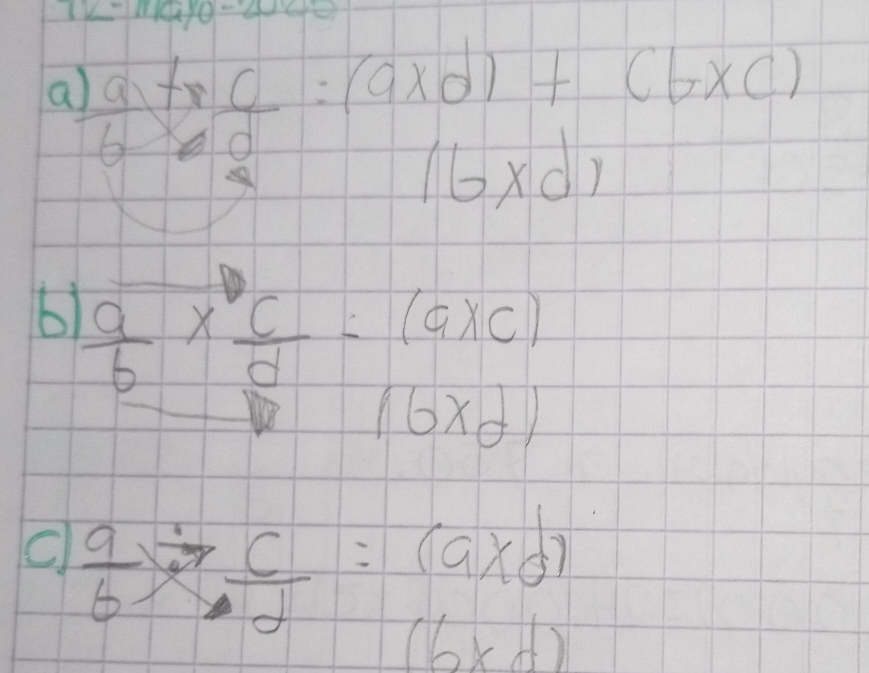 12-Mayo-2025
a) a/b + c/d = (axd) + (bxc)
(bxd)
b) a/b x c/d = (axc)
(bxd)
c) a/b ÷ c/d = (axd)
(bxd)